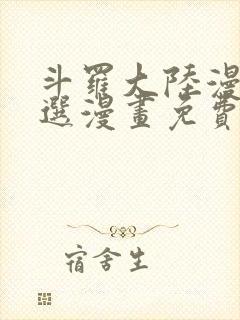 斗羅大陸漫
選漫畫免費
宿舍生